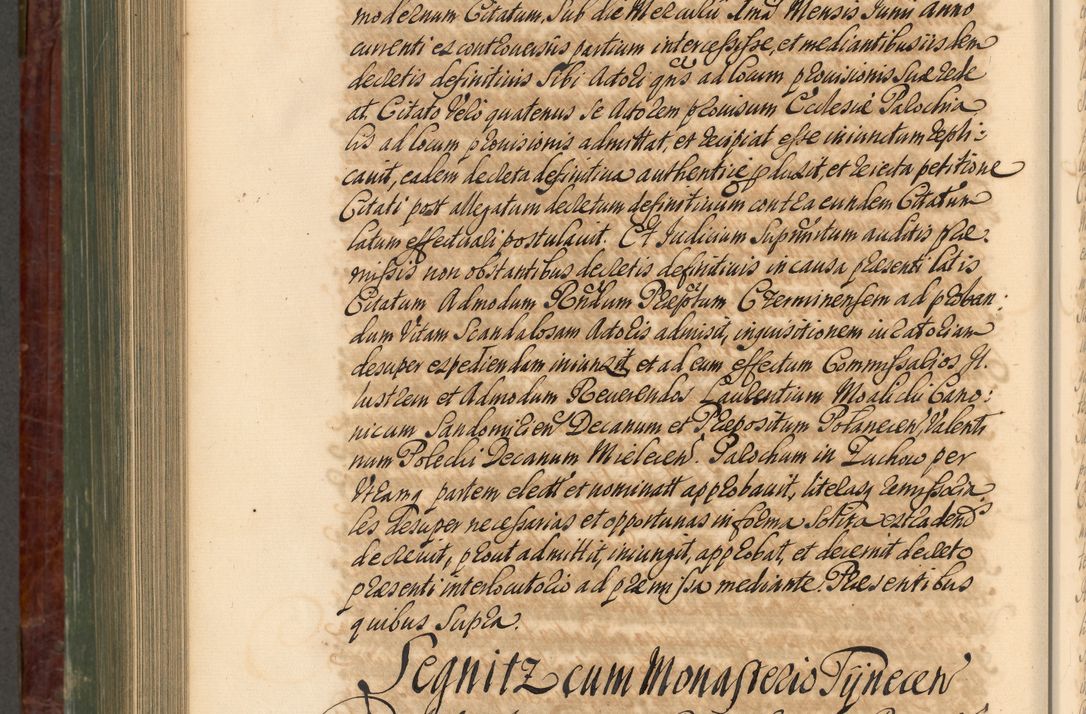 modernum Citatum, Sub die Mercurii Ima Mensis Junii Anno
currenti es controversus partium intercessisse, et mediantibus iisdem
decretis definitiuis Sibi Actori qns ad locum prouisionis Suæ rede
at. Citato Vero quatenus Se Actorem prouisum Ecclesiæ Parochia
lis ad locum prouisionis admittat, et recipiat esse iniunctum repli:
cauit, eadem decreta definitiua authentice pdusit, et reiecta petitione
Citati post allegatum decretum definitiuum contra eundem Citatum
latum effectuari postulauit. Et Judicium Supranitum auditis præ:
missis non obstantibus decretis definitiuis in causa præsenti latis
Citatum Admodum Rndum Præptum Czerminensem ad proban:
dum Vitam Scandalosam Actoris admisit, inquisitionem iuratoriam
desuper espediendam iniunxit, et ad eum effectum Commissarios Il
lustrem et Admodum Reuerendos Laurentium Moalicki Cano:
nicum Sandomirien Decanum et Præpositum Polanecen, Valenti
num Polecki Decanum Mielecen. Parochum in Zuchow per
Vtramq partem elect et nominatt approbauit, literasq remissoria
les desuper necessarias et opportunas in forma Solita estradend
decreuit, prout admittit, iniungit, approbat, et decernit decreto
præsenti interlocutorio ad præmissa mediante. Præsentibus
quibus Supra.
Segnitz cum Monasterio Tynecen